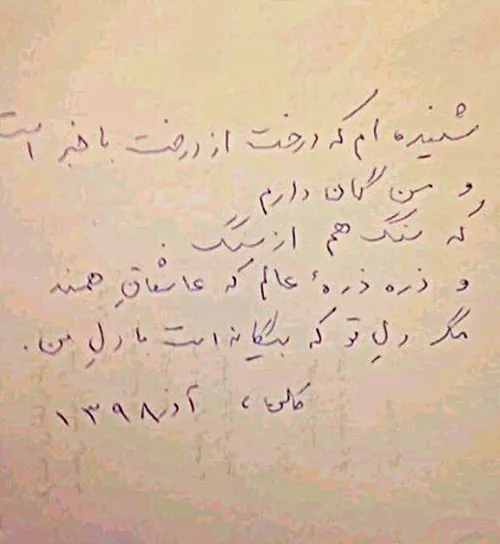 شنیده ام که درخت از درخت با خبر است
و من گمان دارم
که سنگ هم از سنگ.
و ذره ذرهٔ عالم که عاشقانِ همند
مگر دلِ تو که بیگانه است با دلِ من.
آذر ۱۳۹۸